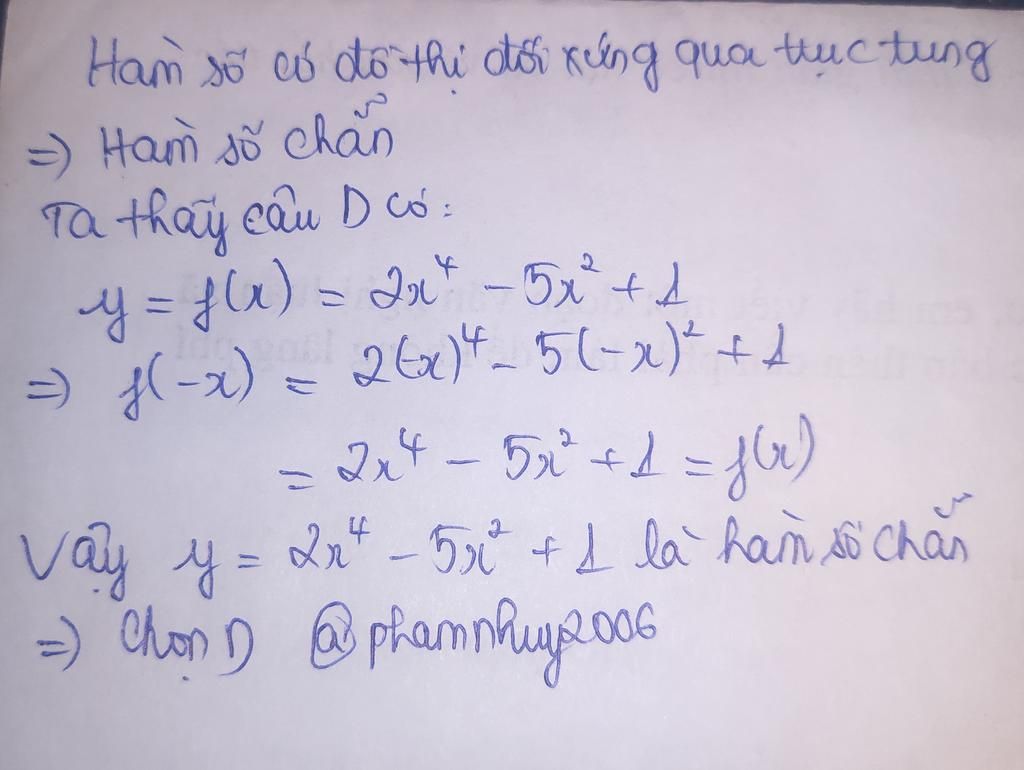 Hàm số có đồ thị đối xứng qua trục tung
=) Hàm số chẵn
Ta thấy câu D có:
y = f(x) = 2x⁴ - 5x² + 1
=) f(-x) = 2(-x)⁴ - 5(-x)² + 1
= 2x⁴ - 5x² + 1 = f(x)
Vậy y = 2x⁴ - 5x² + 1 là hàm số chẵn
=) Chọn D @phamnhuy2006